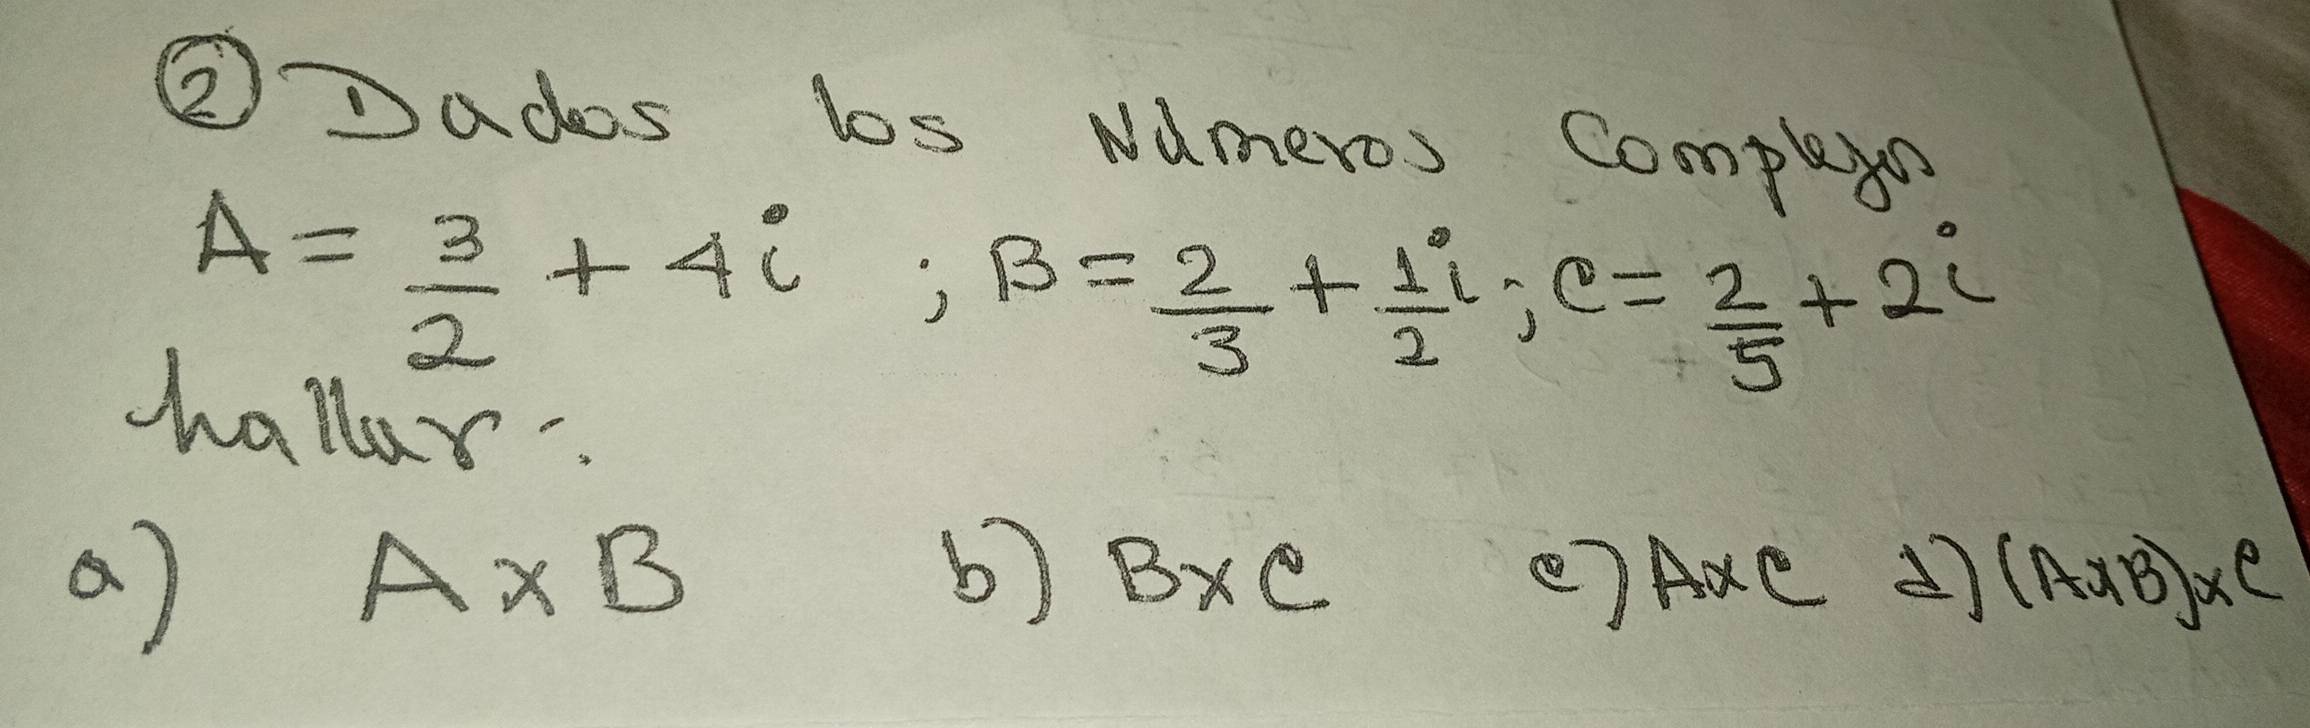 ② Dados los Números Complejos
A = 3/2 + 4i ; B = 2/3 + 1/2 i ; C = 2/5 + 2i
hallar:
a) A x B b) B x C c) A x C d) (A x B) x C